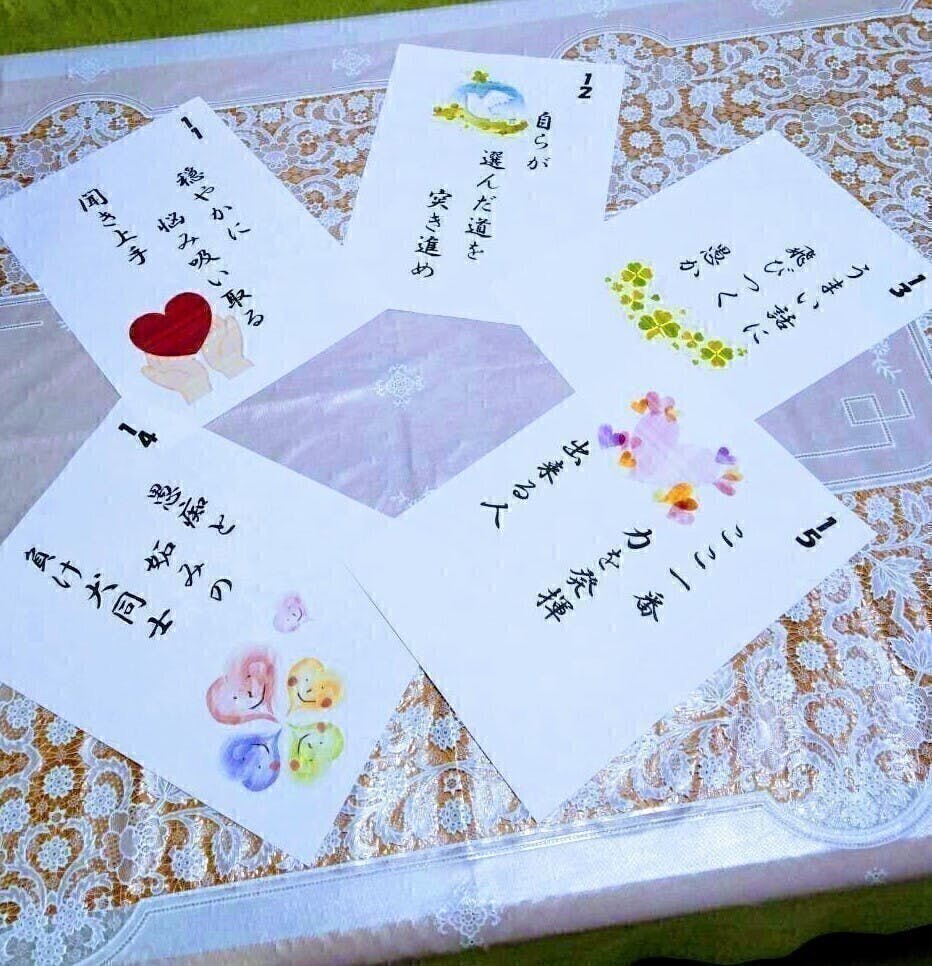 11
穏やかに
悩み吸い取る
聞き上手
12
自らが
選んだ道を
突き進め
13
うまい話に
飛びつく
愚か
14
愚痴と
妬みの
負け犬同士
15
ここ一番
力を発揮
出来る人